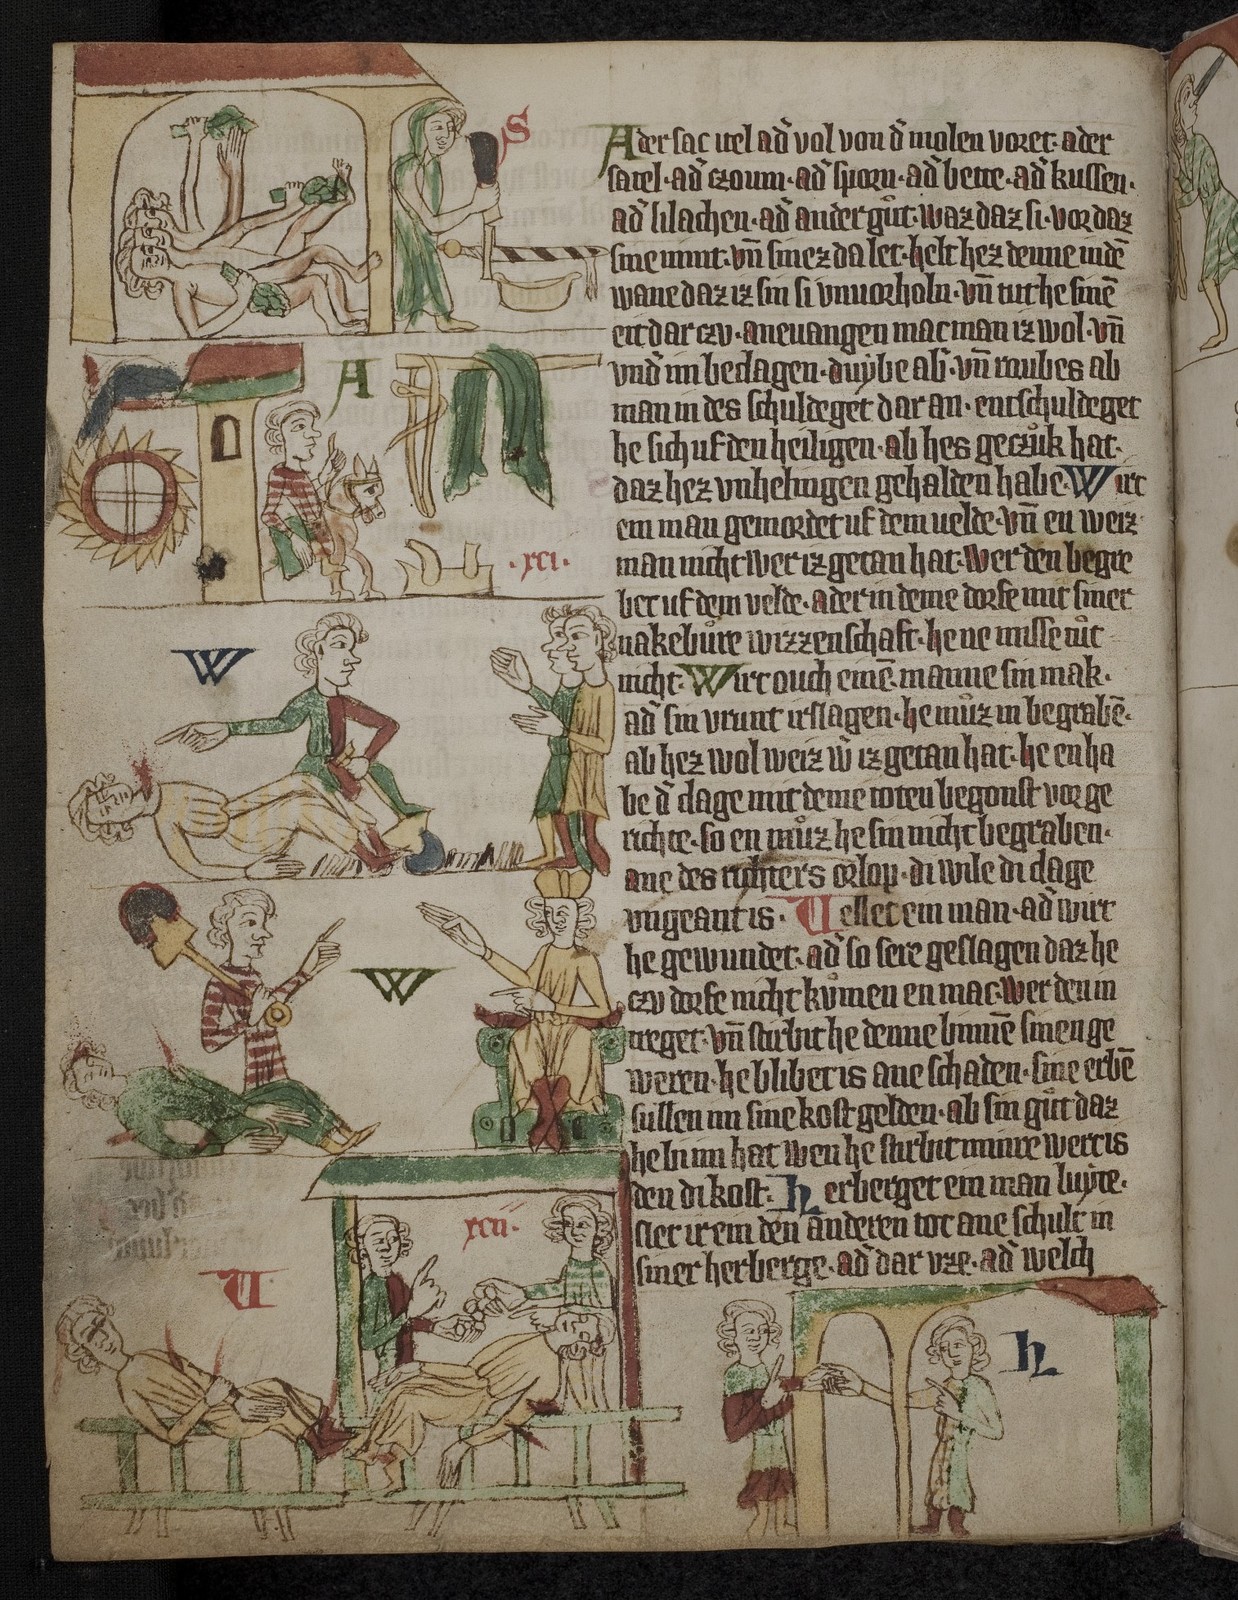 S
Ader sac itel ad̄ vol von d̄ molen voret· ader
satel· ad̄ czoum· ad̄ sporn· ad̄ bette· ad̄ kussen·
ad̄ lilachen· ad̄ ander gůt· waz daz si· vor daz
sine nimt· vn̄ sinez da let· helt hez denne in dē
wane daz iz sin si vnuorholn· vn̄ tut he sinē
eit dar czv· aneuangen mac man iz wol· vn̄
vnd̄ im beclagen· duybe ab̄· vn̄ roubes ab
man in des schuldeget dar an· entschuldeget
he sich uf den heiligen· ab hes geczůk hat·
daz hez vnhelingen gehalden habe· Wirt
A
·xci·
ein man gemordet uf dem uelde· vn̄ en weiz
man nicht wer iz getan hat· wer den begre
bet uf dem velde· ader in deme dorfe mit siner
nakebůre wizzenschaft· he ne misse tůt
nicht· Wirt ouch einē manne sin mak·
W
ad̄ sin vrunt irslagen· he můz in begrabē·
ab hez wol weiz w̄ iz getan hat· he en ha
be d̄ clage mit deme toten begonst vor ge
richte· so en můz he sin nicht begraben·
ane des richters orlop· di wile di clage
vngeant is· Uellet ein man· ad̄ wirt
he gewundet· ad̄ so sere geslagen daz he
W
czv dorfe nicht kůmen en mac· wer den in
treget· vn̄ stirbit he denne binnē sinen ge
weren· he blibet is ane schaden· sine erbē
sullen im sine kost gelden· ab sin gůt daz
he bi im hat wen he stirbit minre wert is
den di kost· Herberget ein man luyte·
slet ir ein den anderen tot ane schult in
siner herberge· ad̄ dar vze· ad̄ welch
xcii·
U
h